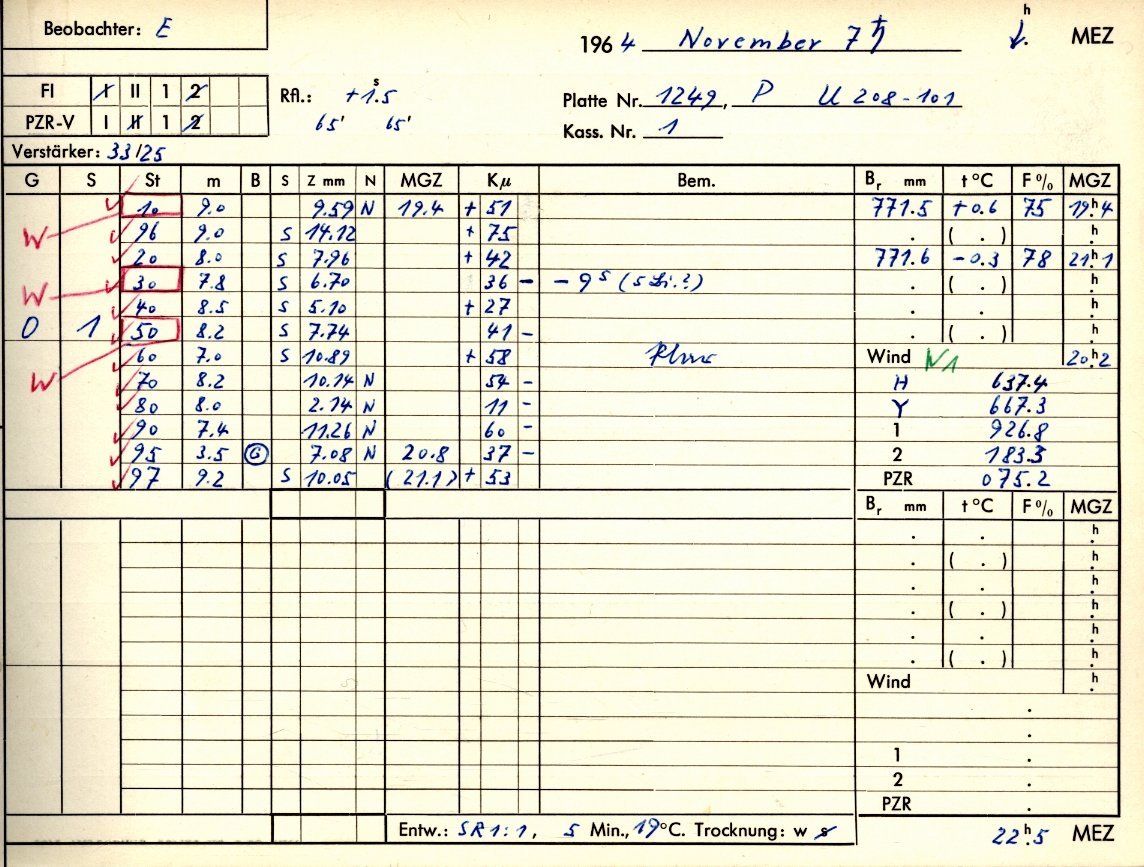 Beobachter: E
1964 November 7 ♄ h MEZ
FI I II 1 2
PZR-V I II 1 2
Rfl.: +1.s5
65' 65'
Platte Nr. 1249, P U 208-101
Kass. Nr. 1
Verstärker: 33/25
G S St m B S Z mm N MGZ Kμ Bem. Br mm t °C F % MGZ
10 9.0 9.59 N 19.4 + 51 771.5 +0.6 75 19h.4
W 96 9.0 S 14.12 + 75 . ( . ) h.
20 8.0 S 7.96 + 42 771.6 -0.3 78 21h.1
W 30 7.8 S 6.70 36 - - 9s (5 Li.?) . ( . ) h.
40 8.5 S 5.10 + 27 . . h.
0 1 50 8.2 S 7.74 41 - . ( . ) h.
60 7.0 S 10.89 + 58 Wind N1 20h.2
W 70 8.2 10.14 N 54 - H 637.4
80 8.0 2.14 N 11 - Y 667.3
90 7.4 11.26 N 60 - 1 926.8
95 3.5 G 7.08 N 20.8 37 - 2 183.3
97 9.2 S 10.05 (21.1) + 53 PZR 075.2
Br mm t °C F % MGZ
. . h.
. ( . ) h.
. . h.
. ( . ) h.
. . h.
. ( . ) h.
Wind h.
.
.
1 .
2 .
PZR .
Entw.: SR 1:1, 5 Min., 19 °C. Trocknung: w s
22h.5 MEZ